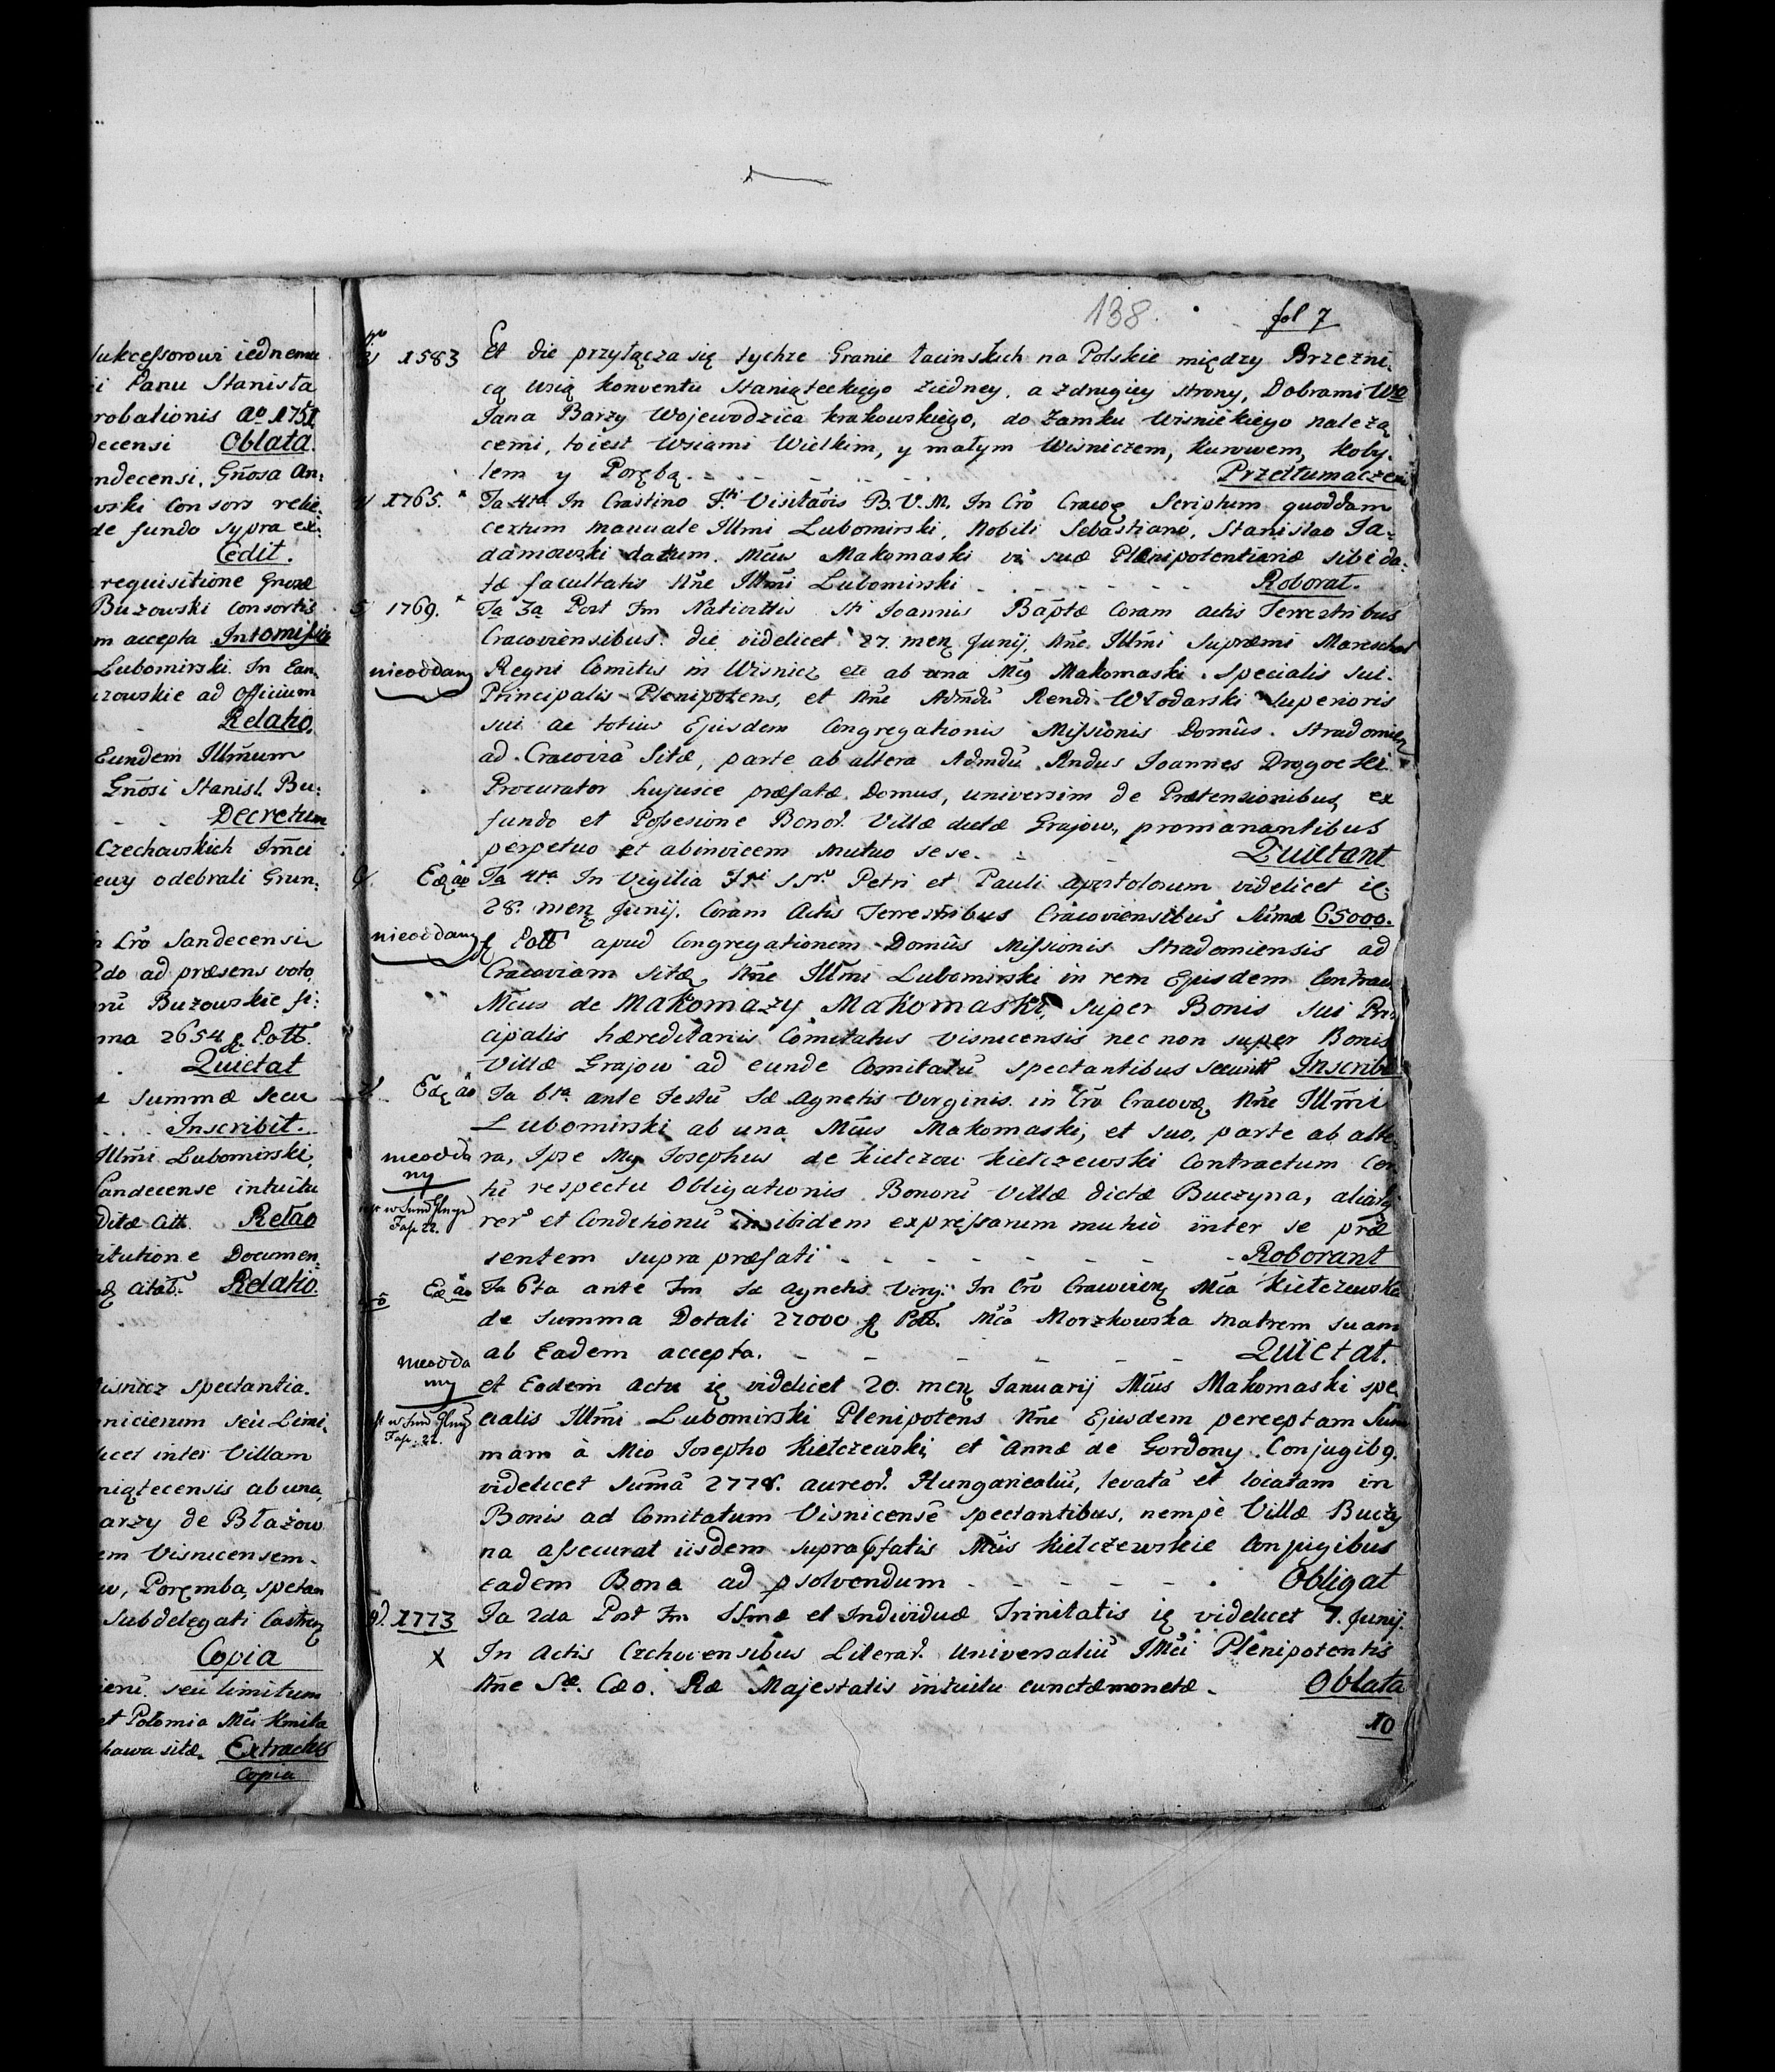 sukcessorowi iednemu
i Panu Stanisła
robationis Ao 1751
decensi Oblata.
ndecensi, Gnosa An:
wski Consors relic:
de fundo supra ex:
Cedit.
requisitione Gnosæ
Buzowski Consortis
m accepta Intomissia
Lubomirski. In Ean:
uzowskie ad Officium
Relatio.
Eundem Illmum
Gnosi Stanisl. Bu:
Decretum
Czechowskich Jmci
odebrali Grun:
Crō Sandecensi
2do ad præsens voto,
Buzowskie
ma 2654 f. Poll.
Quietat
summæ
Inscribit.
Illmi Lubomirski,
Sandecense intuitu
Relāo
titutione Documen:
Relatio.
Wisnicz spectantia.
nicierum seu Limi:
licet inter Villam
niątecensis ab una,
arzy de Błażow
em Visnicensem.
w, Poręmba, spetan
Subdelegati Castren
Copia
seu limitum
et Połomia Mci Kmita
hawa sitæ. Extractus
Copia
138.
fol 7
3 1583 Et die przyłącza się tychże Granic łacinskich na Polskie między Brzezni:
cą wsią konventu Staniąteckiego ziedney, a zdrugiey strony, Dobrami Wo
Jana Barzy Wojewodzica krakowskiego, do zamku Wisnickiego należą
cemi, toiest Wsiami Wielkim, y małym Wisniczem, Kurowem, Koby.
lem y Porębą. Przetłumaczeni
4 1765. Fa 4ta In Crastino Fti Visitāois B.V.M. In Crō Cracoę Scriptum quoddam
certum manuale Illmi Lubomirski, Nobili Sebastiano, Stanislao Ja-
damowski datum. Mcus Makomaski vi suæ Plenipotentiariæ sibi da:
tæ facultatis Nne Illmi Lubomirski Roborat.
5 1769. Fa 3a Post Fm Nativttis Sti Joannis Baptæ Coram actis Terrestribus
Cracoviensibus die videlicet 27. men Junij, Nne Illmi Supremi Mareschal
nieoddany Regni Comitis in Wisnicz etc ab una Mcus Makomaski Specialis sui.
Principalis Plenipotens, et Nne Admdu Rendi Włodarski Superioris
sui ac totius Ejusdem Congregationis Missionis Domûs. Stradomien
ad Cracoviā Sitæ, parte ab altera Admdu Rndus Joannes Drogocki
Procurator hujusce præfatæ Domus, universim de Prætensionibus, ex
fundo et Possesione Bonor. Villæ dictæ Grajow, promanantibus
perpetuo et abinvicem mutuo sese. Quietant
6 Eoę āo Fa 4ta In Vigilia Fti SSr. Petri et Pauli apostolorum videlicet ię:
28. men Junij. Coram Actis Terrestribus Cracoviensibus Sūmæ 65000.
nieoddany f Poll apud Congregationem Domûs Missionis Stradomiensis ad
Cracoviam Sitæ, Nne Illmi Lubomirski in rem Ejusdem Contract
Mcus de Makomazy Makomaski, super Bonis sui Prin
cipalis hæreditariis Comitatus Visnicensis nec non super Bonis
Villæ Grajow ad eunde Comitatū spectantibus securitt Inscribit
7 Eoę āo Fa 6ta ante Festū Sæ Agnetis Virginis in Crō Cracovę, Nne Illmi
Lubomirski ab una Mcus Makomaski, et suo, parte ab alte
nieodda ra, Ipse Mcus Josephus de Kiełczow Kiełczewski Contractum Cer
ny ti respectu Obligationis Bonorū Villæ dictæ Buczyna, aliarq
Fas. 22. rer. et Conditionū inibidem expressarum mutuo inter se præ
sentem supra præfati Roborant
Eoę āo Fa 6ta ante Fm Sæ Agnetis Virg: In Crō Cracovien Mca Kiełczewska
de Summa Dotali 27000 f Poll. Mca Morzkowska Matrem suam
ab Eadem accepta. Quietat.
nieodda
ny et Eodem actu ię videlicet 20. men Januarij Mcus Makomaski spe
cialis Illmi Lubomirski Plenipotens Nne Ejusdem perceptam Sum
Fas. 22. mam à Mco Josepho Kiełczewski, et Annæ de Gordony Conjugib9.
videlicet Sūmā 2778. aureor. Hungaricaliū, levatā et locatam in
Bonis ad Comitatum Visnicensē spectantibus, nempè Villæ Buczy
na assecurat iisdem supra pfatis Mcis Kiełczewskie Conjugibus
eadem Bona ad psolvendum Obligat
9. 1773 Fa 2da Post Fm SSmæ et Individuæ Trinitatis ię videlicet 7. Junij.
X In Actis Czchovensibus Literar. Universaliū JMci Plenipotentis
Nne Sæ. Cæo. Ræ Majestatis intuitu cunctæ monetæ. Oblata
10